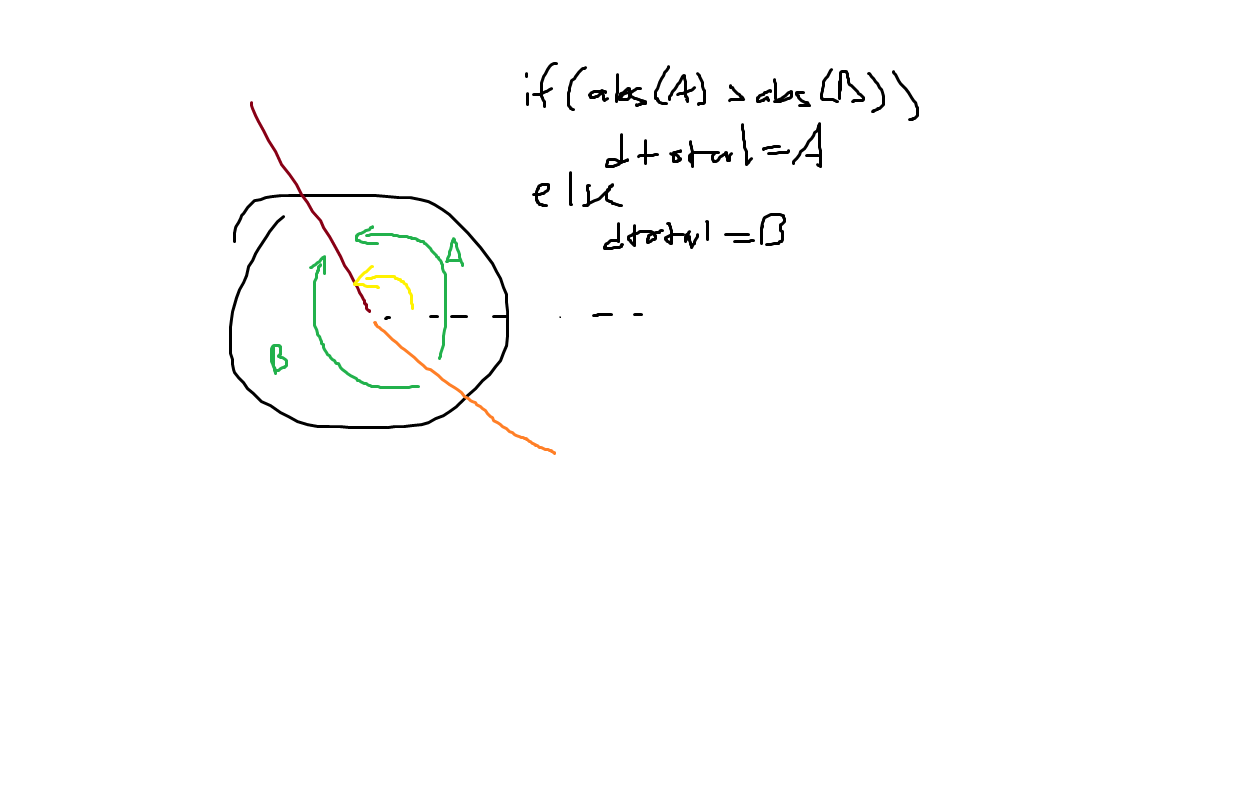 if(abs(A)>abs(B))
dtotal=A
else
dtotal=B
A
B